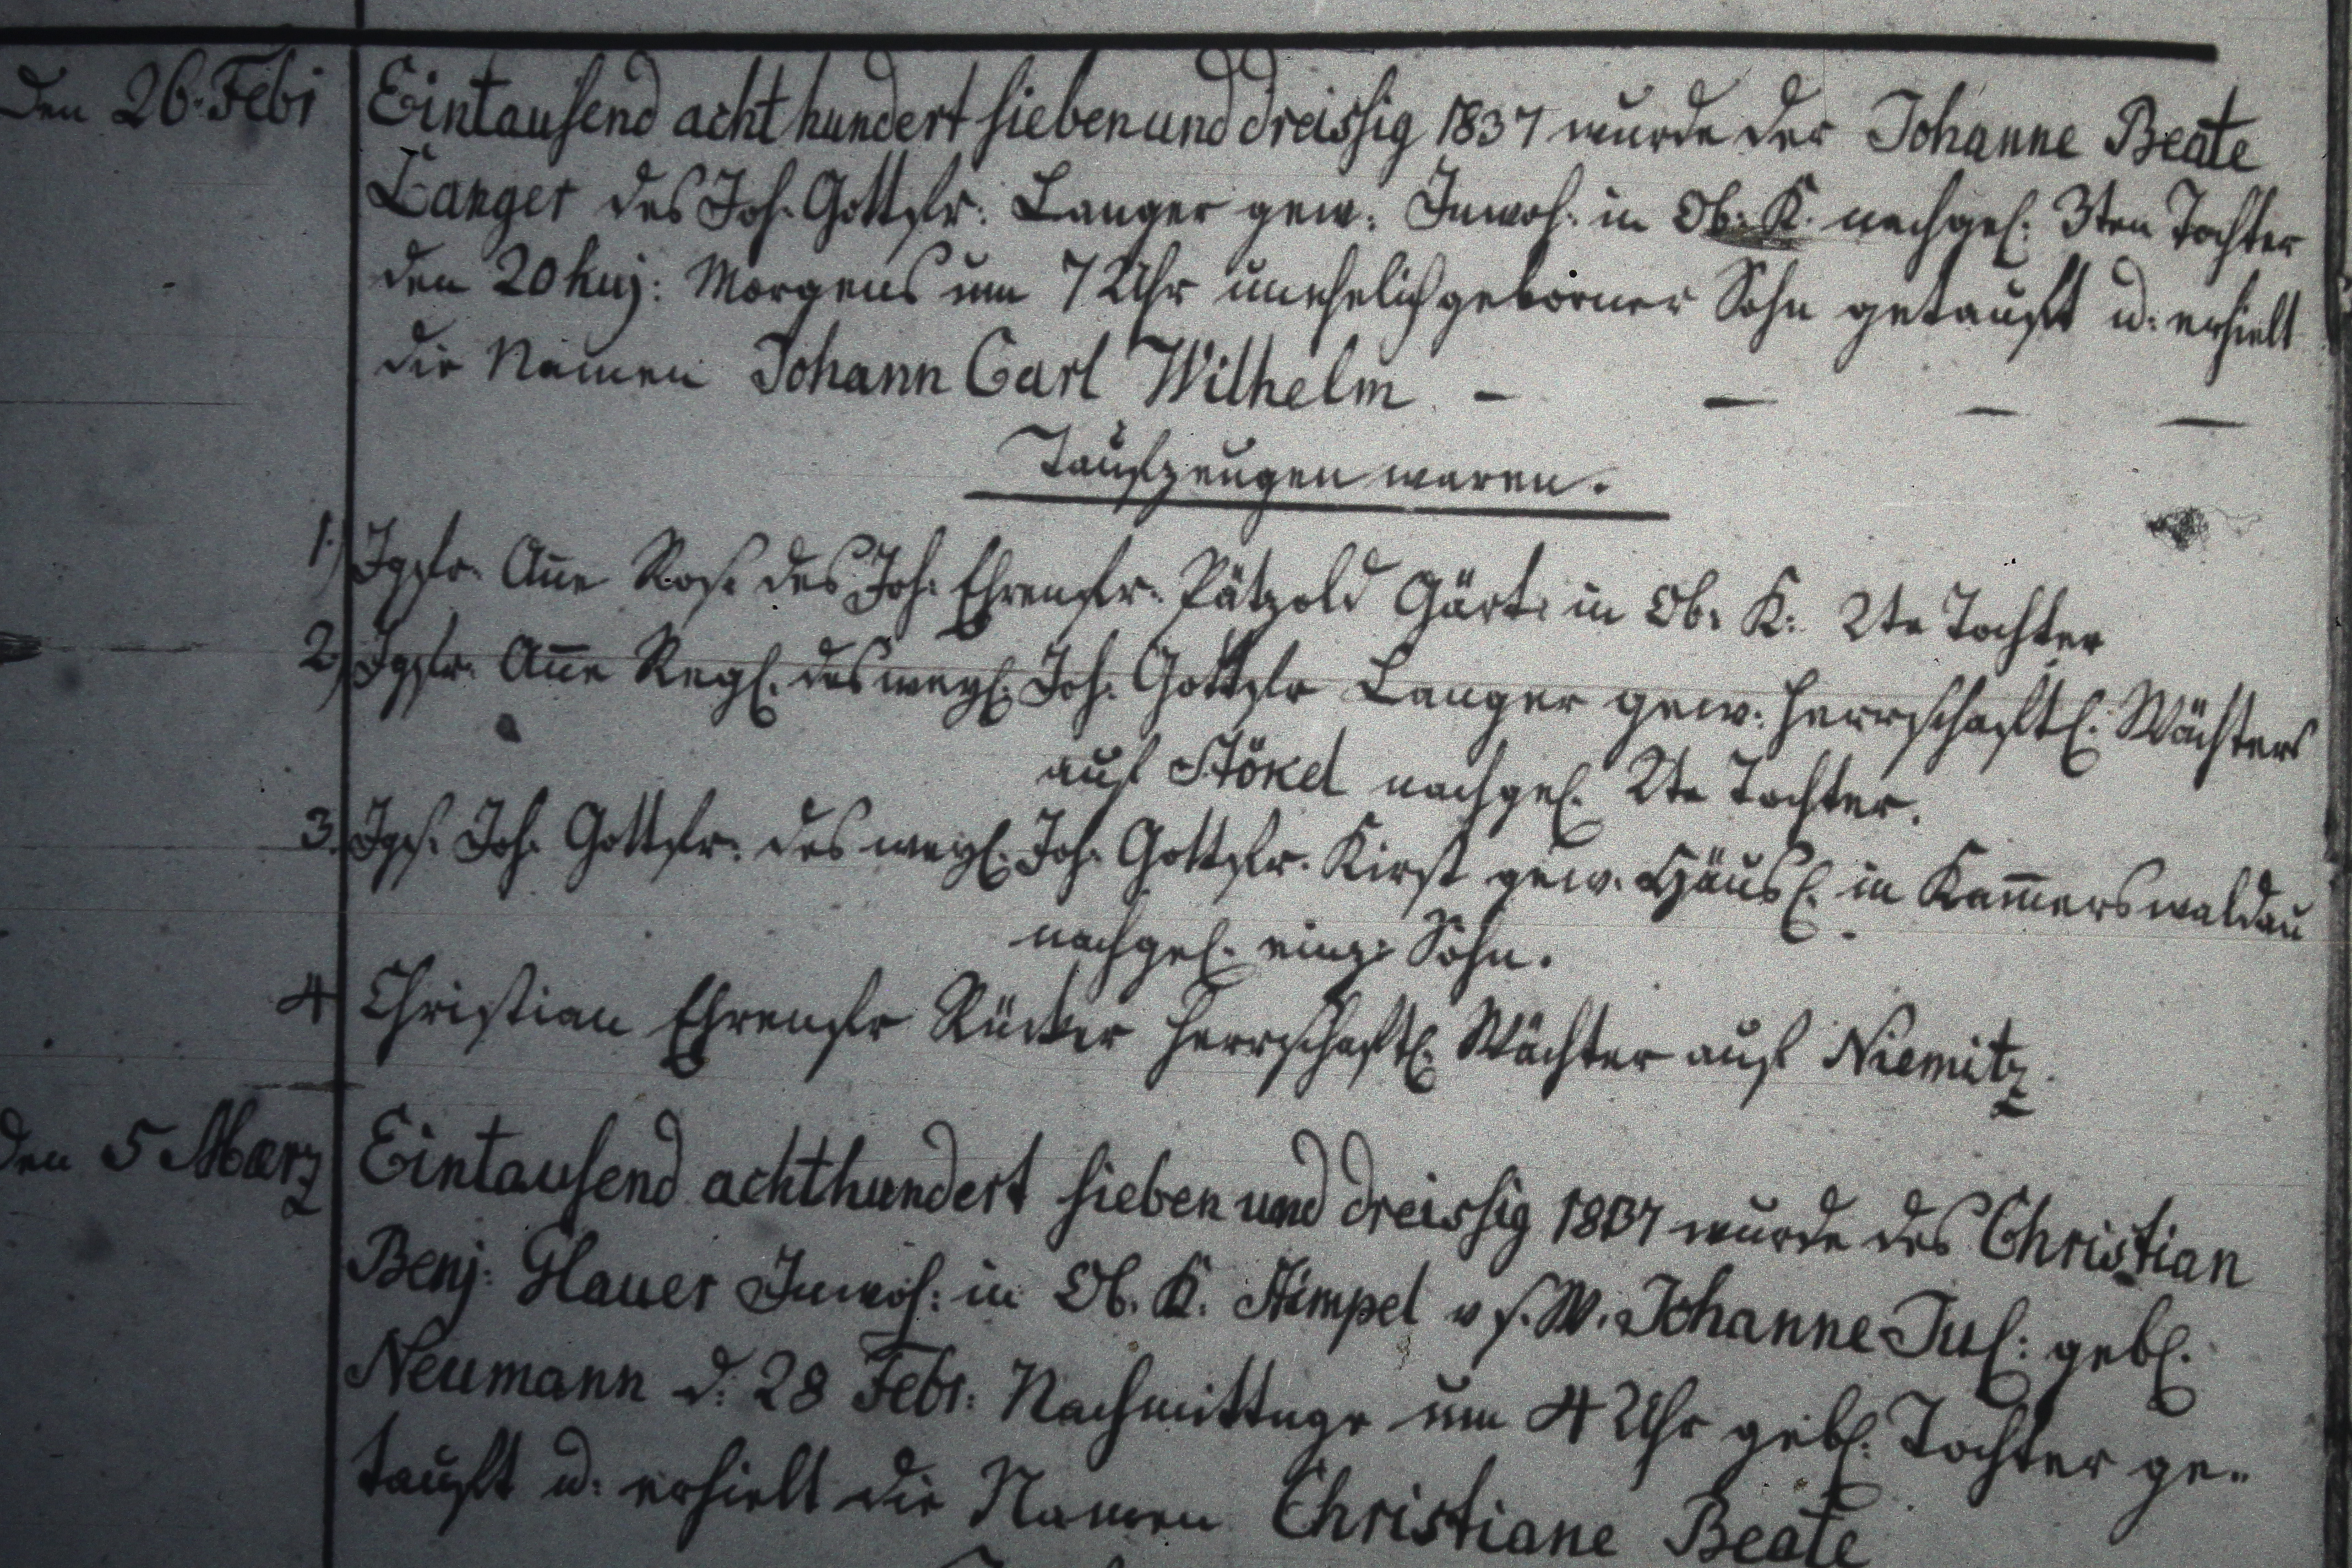 Den 26. Febr
Eintausend acht hundert sieben und dreissig 1837 wurde der Johanne Beate
Langer des Joh. Gottfr: Langer gew: Inwoh. in Ob: K. nachgel: 3ten Tochter
den 20 huj: Morgens um 7 Uhr unehelich geborner Sohn getauft u: erhielt
die Namen Johann Carl Wilhelm — — — —
Taufzeugen waren.
1.) Jgfr. Añe Ros. des Joh: Ehrenfr. Pätzold Gärt: in Ob. K. 2te Tochter
2.) Jgfr. Añe Regl. des weyl. Joh. Gottfr Langer gew. herrschaftl. Wächters
auf Stökel nachgel. 2te Tochter.
3. Jgs. Joh. Gottfr: des weyl. Joh. Gottfr. Kirst gew. Häusl. in Kam̃erswaldau
nachgel. einz: Sohn.
4 Christian Ehrenfr Rücker herrschaftl. Wächter auf Niemitz.
Den 5 Marz
Eintausend achthundert sieben und dreissig 1837 wurde des Christian
Benj. Glauer Inwoh: in Ob. K. Stimpel u s. W. Johanne Jul: gebl.
Neumann d: 28 Febr: Nachmittage um 4 Uhr gebl. Tochter ge-
tauft u: erhielt die Namen Christiane Beate